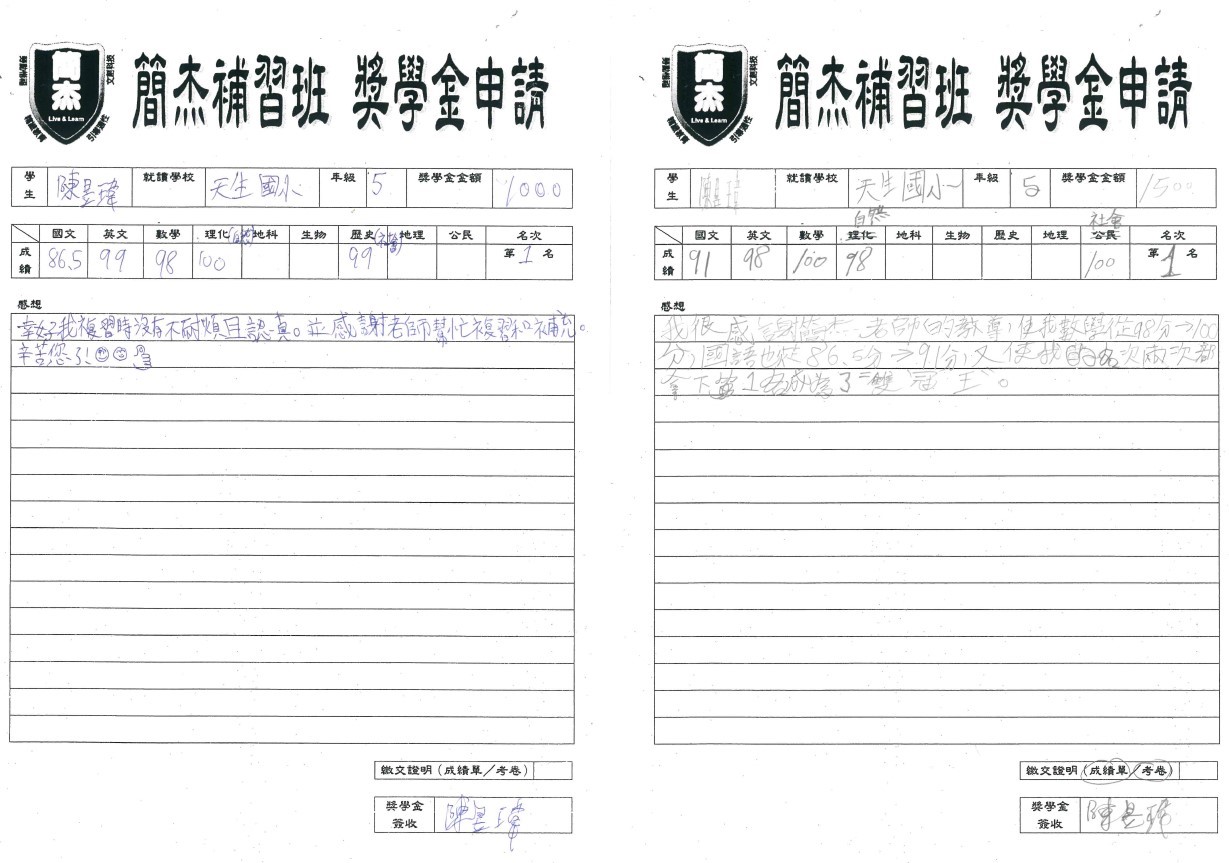 簡杰補習班 獎學金申請
簡杰
Live & Learn
引導適性
學生 陳昱瑋 就讀學校 天生國小 年級 5 獎學金金額 1000
國文 英文 數學 理化(自然) 地科 生物 歷史(社會) 地理 公民 名次
成績 86.5 99 98 100 99 第1名
感想
幸好我複習時沒有不耐煩且認真。並感謝老師幫忙複習和補充。
辛苦您了!
繳交證明(成績單/考卷)
獎學金簽收 陳昱瑋
簡杰補習班 獎學金申請
簡杰
Live & Learn
引導適性
學生 陳昱瑋 就讀學校 天生國小 年級 5 獎學金金額 1500
自然 社會
國文 英文 數學 理化 地科 生物 歷史 地理 公民 名次
成績 91 98 100 98 100 第1名
感想
我很感謝簡杰老師的教導,使我數學從98分→100
分,國語也從86.5分→91分,又使我的名次兩次都
拿下第1名成為了"雙冠王"。
繳交證明(成績單/考卷)
獎學金簽收 陳昱瑋